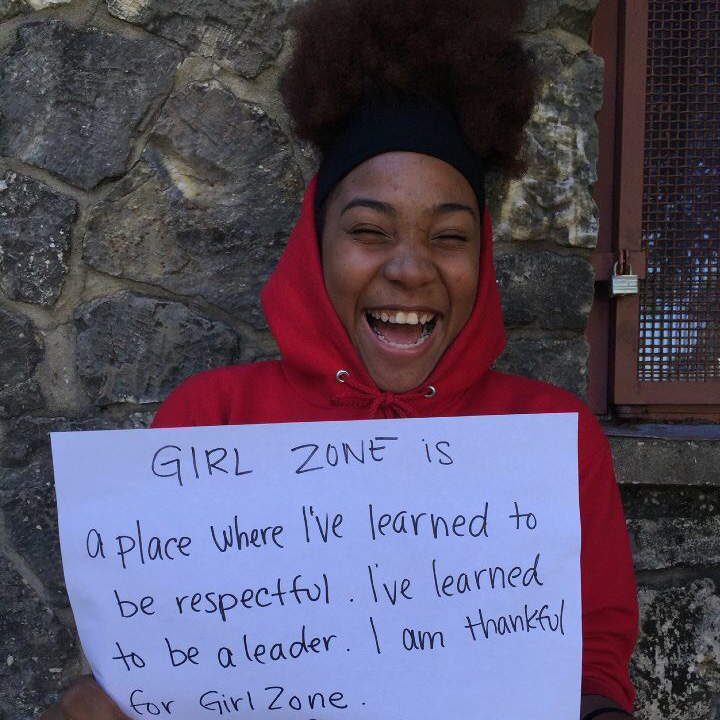 GIRL ZONE iS
a place where I've learned to
be respectful. I've learned
to be a leader. I am thankful
for Girl Zone.